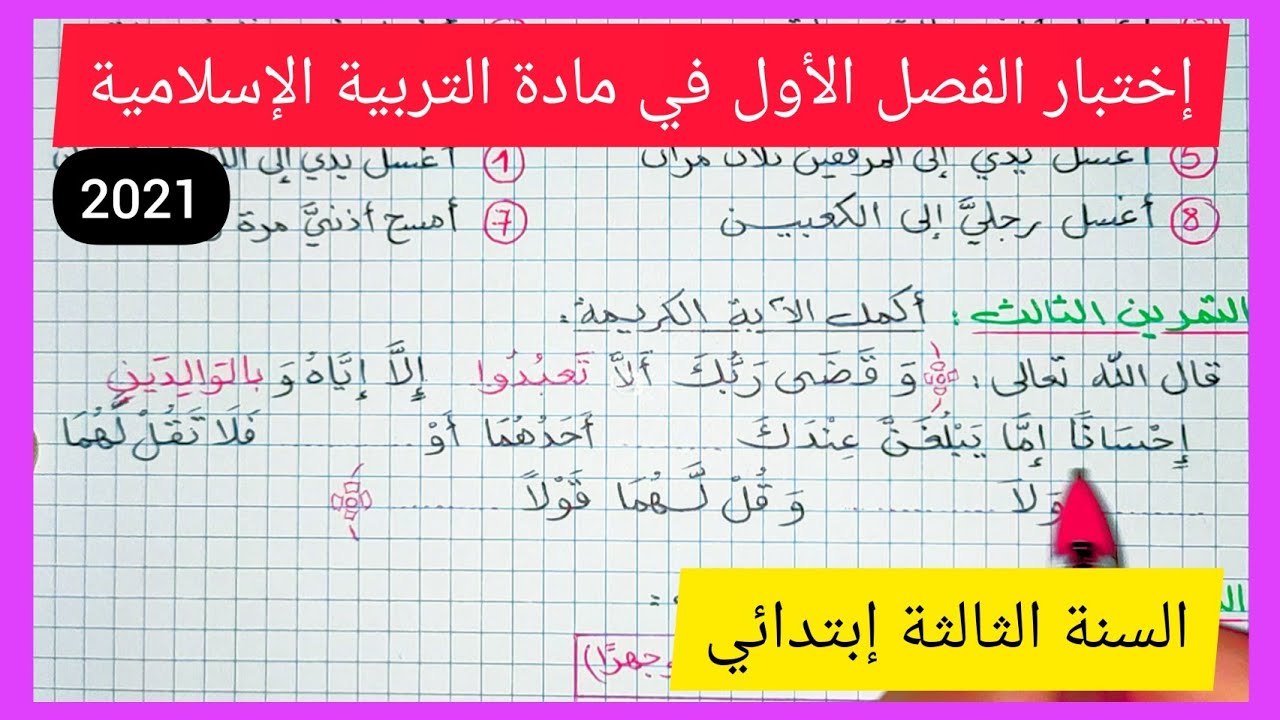 إختبار الفصل الأول في مادة التربية الإسلامية
2021
5 أغسل يدي إلى المرفقين ثلاث مرات
1 أغسل يدي إلى
8 أغسل رجليَّ إلى الكعبيـن
7 أمسح أذنيَّ مرة
التمرين الثالث: أكمل الآية الكريمة:
قال الله تعالى: وَ قَضَى رَبُّكَ أَلاَّ تَعبُدُوا إِلَّا إِيَّاهُ وَ بالوَالِدَينِ
إِحْسَانًا إِمَّا يَبْلُغَنَّ عِنْدَكَ ........ أَحَدُهُمَا أَوْ ........ فَلَا تَقُلْ لَّهُمَا
........ وَلاَ ........ وَ قُلْ لَّهُمَا قَوْلاً ........
وجهرًا)
السنة الثالثة إبتدائي